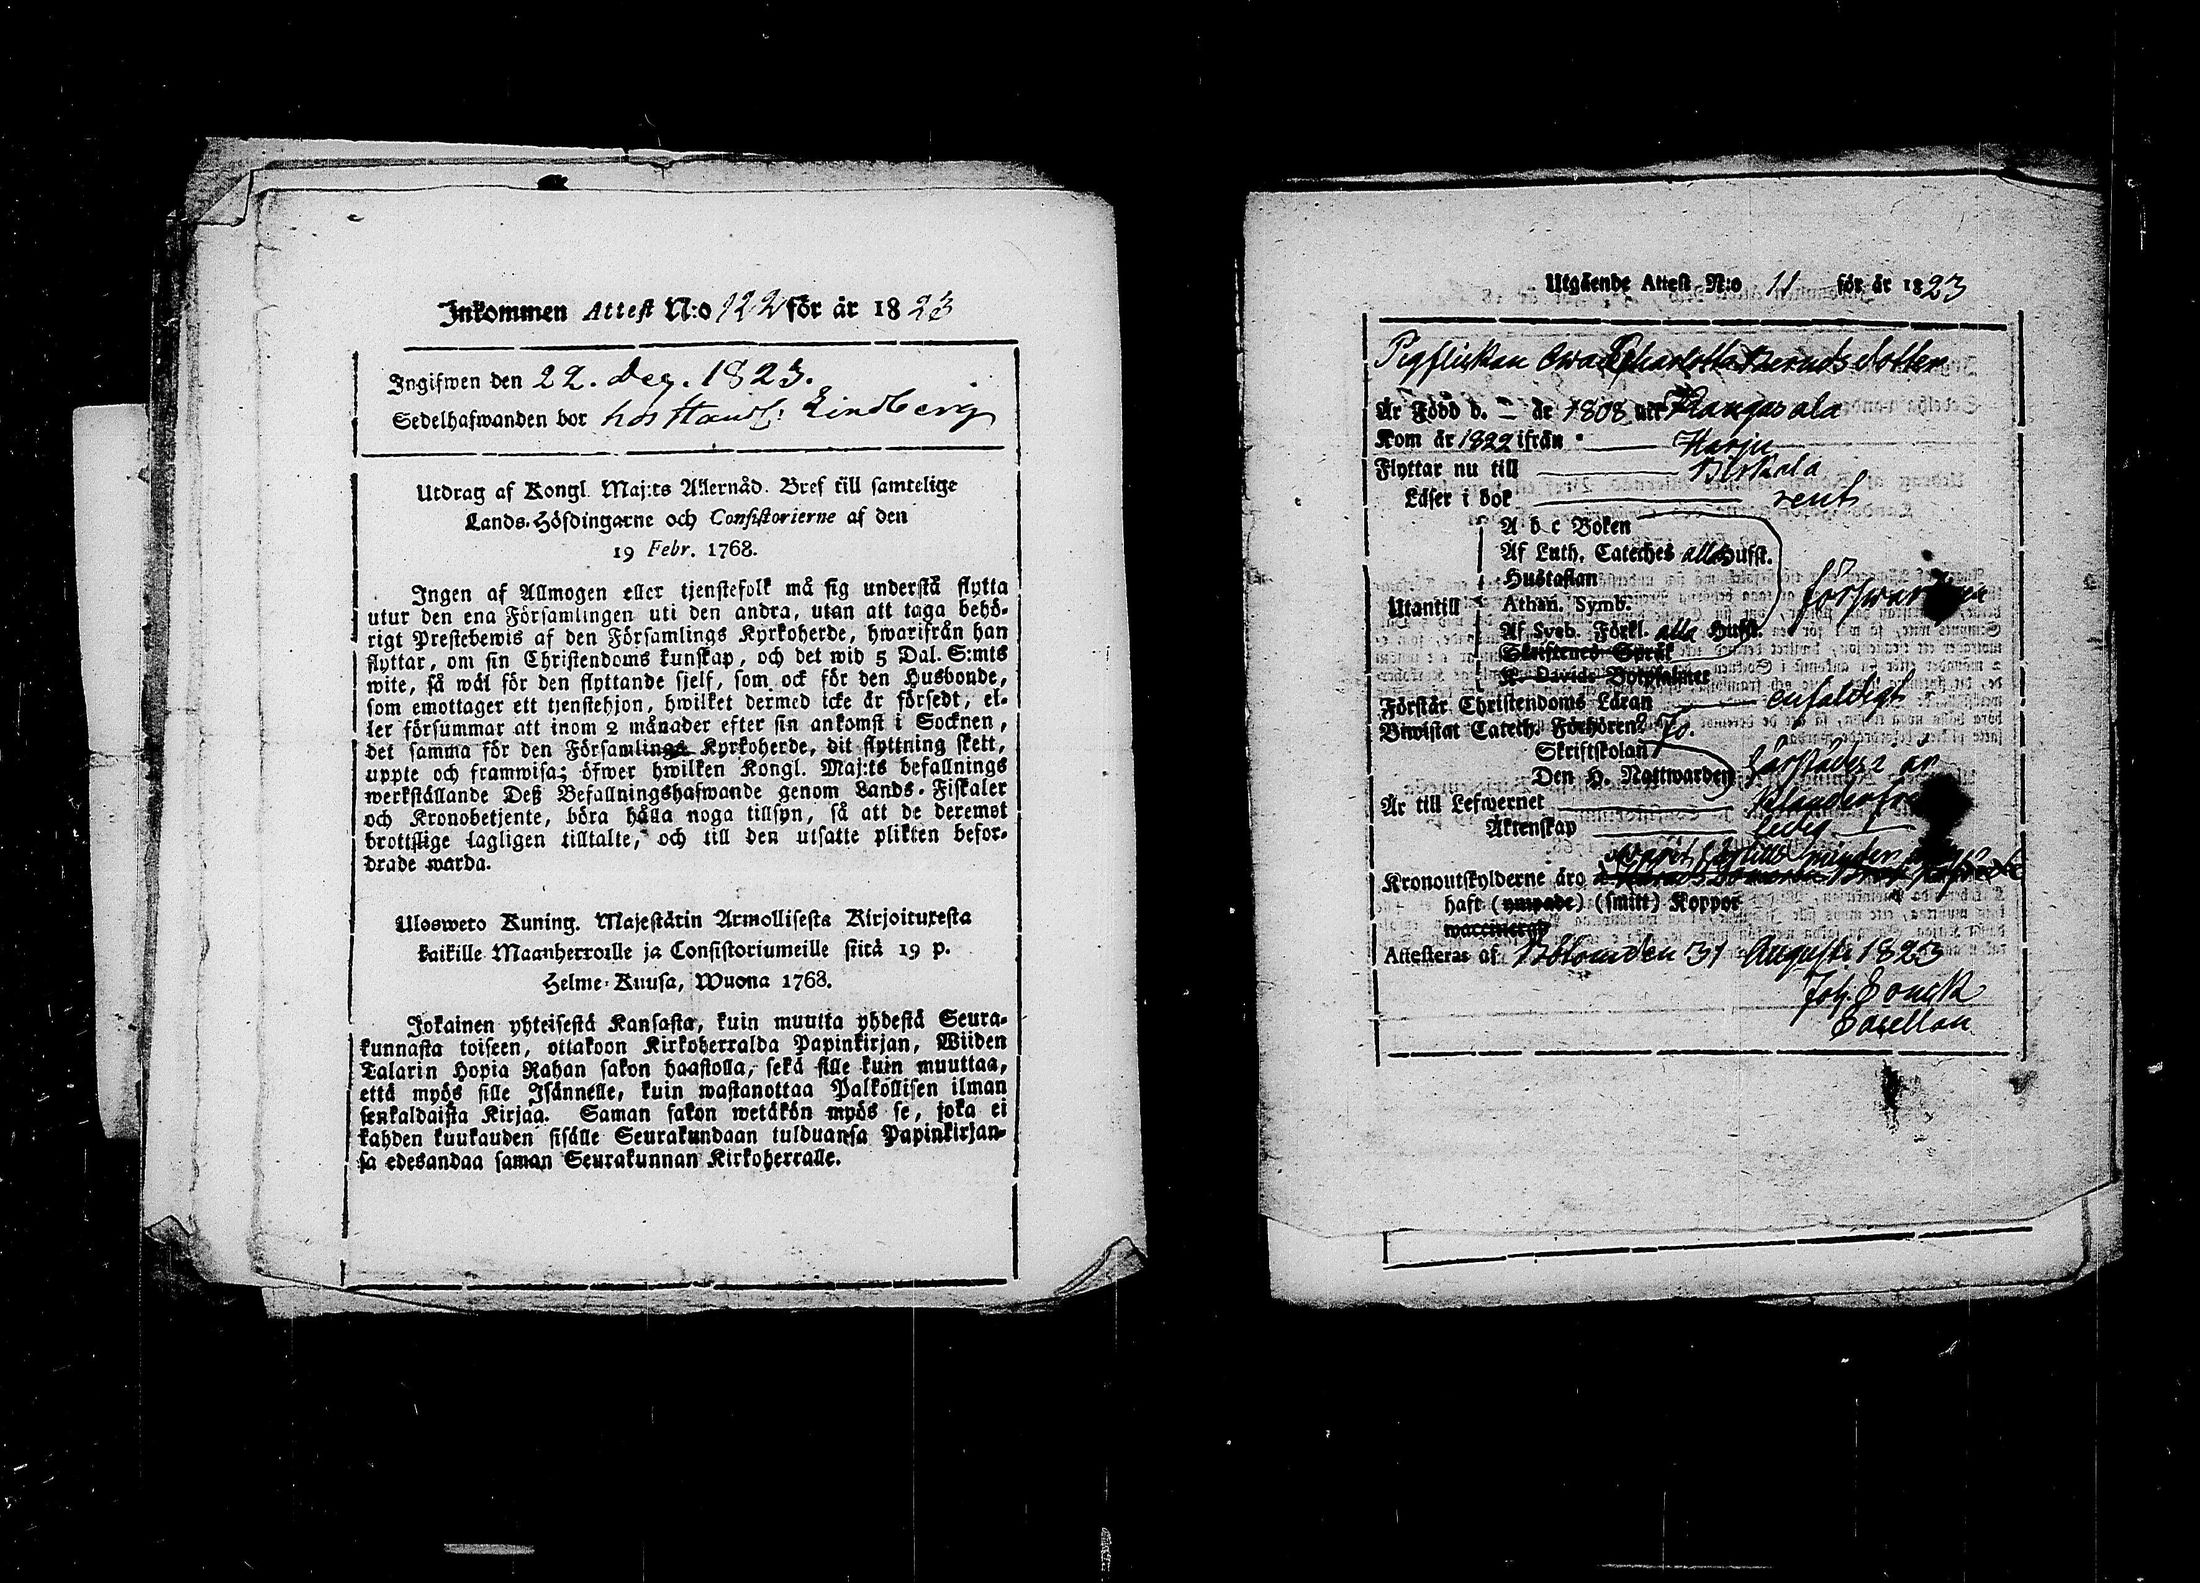 Inkommen Attest N:o 122 för år 1823
Ingifwen den 22. Dec. 1823.
Sedelhafwanden bor hos Handl: Lindberg
Utdrag af Kongl. Maj:ts Allernåd. Bref till samtelige
Lands-Höfdingarne och Consistorierne af den
19 Febr. 1768.
Ingen af Allmogen eller tjenstefolk må sig understå flytta
utur den ena Församlingen uti den andra, utan att taga behö-
rigt Prestebewis af den Församlings Kyrkoherde, hwarifrån han
flyttar, om sin Christendoms kunskap, och det wid 5 Dal. S:mts
wite, så wäl för den flyttande sjelf, som ock för den Husbonde,
som emottager ett tjenstehjon, hwilket dermed icke är försedt, el-
ler försummar att inom 2 månader efter sin ankomst i Socknen,
det samma för den Församlings Kyrkoherde, dit flyttning skett,
uppte och framwisa; öfwer hwilken Kongl. Maj:ts befallnings
werkställande Deß Befallningshafwande genom Lands-Fiskaler
och Kronobetjente, böra hålla noga tillsyn, så att de deremot
brottslige lagligen tilltalte, och till den utsatte plikten befor-
drade warda.
Ulosweto Kuning. Majestätin Armollisesta Kirjoituxesta
kaikille Maanherroille ja Consistoriumeille siitä 19 p.
Helme-Kuusa, Wuona 1768.
Jokainen yhteisestä Kansasta, kuin muutta yhdestä Seura-
kunnasta toiseen, ottakoon Kirkoherralda Papinkirjan, Wiiden
Talarin Hopia Rahan sakon haastolla, sekä sille kuin muuttaa,
että myös sille Isännelle, kuin wastanottaa Palkollisen ilman
senkaldaista Kirjaa. Saman sakon wetäkön myös se, joka ei
kahden kuukauden sisälle Seurakundaan tulduansa Papinkirjan-
sa edesandaa saman Seurakunnan Kirkoherralle.
Utgående Attest N:o 11 för år 1823
Pigflickan Ewa Charlotta Berndsdotter
Är Född d. – år 1808 uti Kangasala
Kom år 1822 ifrån Harju
Flyttar nu till Birkala
Läser i bok rent
A b c Boken
Af Luth. Cateches alla Hufst.
Hustaflan
Utantill Athan. Symb. förswarligen
Af Sveb. Förkl. alla Hufst.
Skriftenes Språk
K. Davids Botpsalmer
Förstår Christendoms Läran enfaldigt
Biwistat Catech. Förhören
Skriftskolan
Den H. Nattwarden
Är till Lefwernet
Äktenskap ledig
Kronoutskylderne äro
haft (ympade) (smitt) Koppor
waccinerad
Attesteras af Blom den 31 Augusti 1823
Joh. Sonck
Sacellan